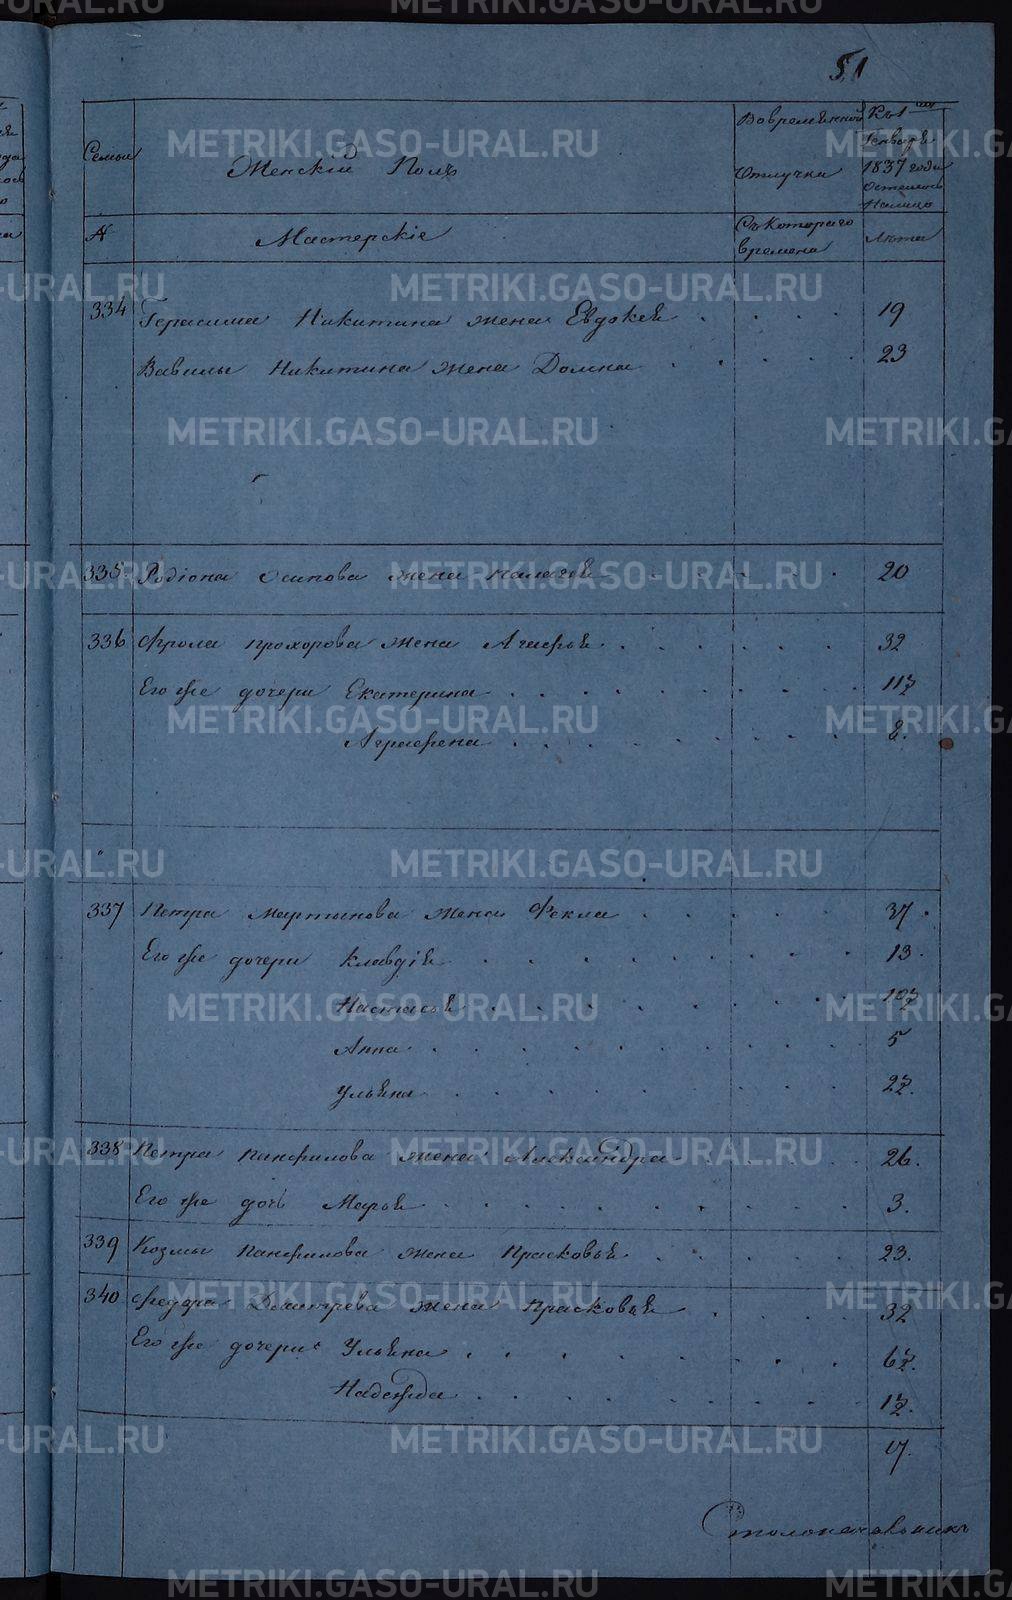 51
Семьи
Женскій Полъ
Вовременной
Отлучки
Къ 1ому
Генваря
1837 года
осталось
Налицо
№
Мастерскіе
Съ Котораго
времена
Лѣта
334 Герасима Никитина жена Евдокея 19
Вавилы Никитина жена Домна 23
335 Родіона Осипова жена палагея 20
336 Фрола прохорова жена Агафья 32
Его же дочери Екатерина 11½
Аграфена 8.
337 Петра Мартынова жена Фекла 37.
Его же дочери Клавдія 13.
Настасья 10½
Анна 5
Ульяна 2½.
338 Петра панфилова жена Александра 26.
Его же дочь Марья 3.
339 Козмы панфилова жена Прасковья 23.
340 Федора Дмитрева жена прасковья 32
Его же дочери Ульяна 6½.
Надежда 1½.
17.
METRIKI.GASO-URAL.RU